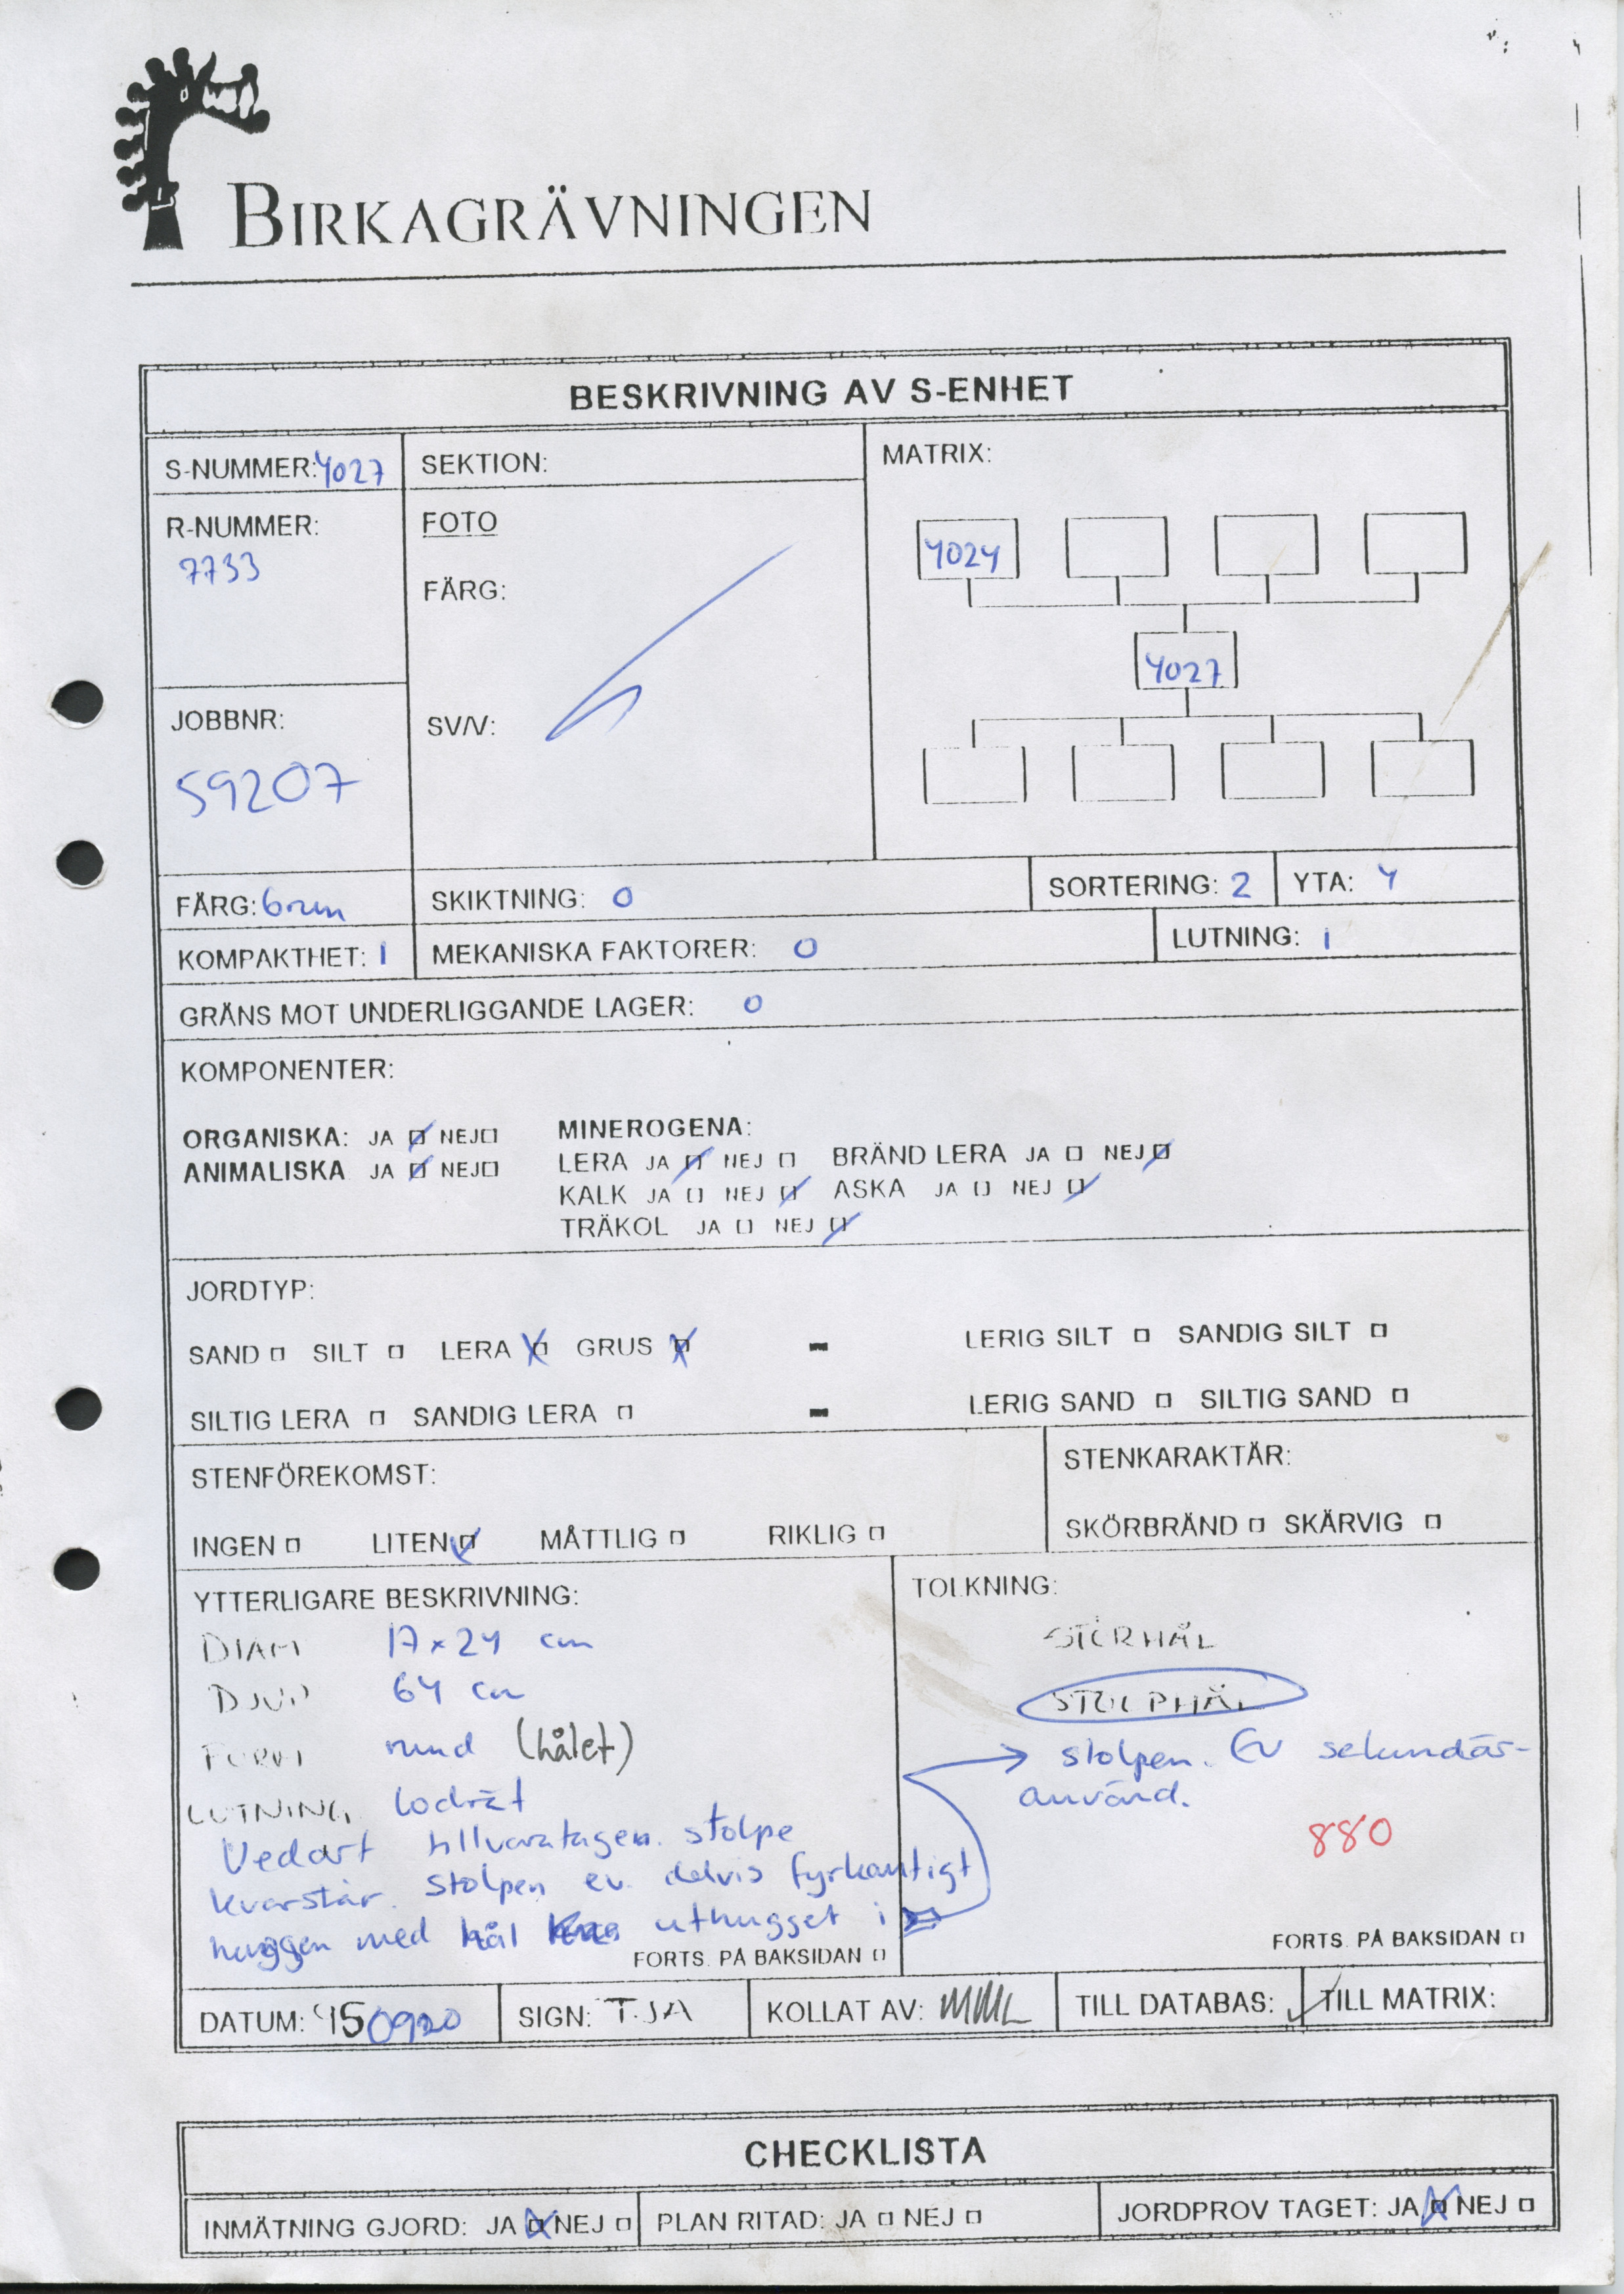 BIRKAGRÄVNINGEN
BESKRIVNING AV S-ENHET
S-NUMMER: 4027
SEKTION:
MATRIX:
R-NUMMER:
7733
FOTO
FÄRG:
SV/V:
4024
4027
JOBBNR:
59207
FÄRG: brun
SKIKTNING: 0
SORTERING: 2
YTA: 4
KOMPAKTHET: 1
MEKANISKA FAKTORER: 0
LUTNING: 1
GRÄNS MOT UNDERLIGGANDE LAGER: 0
KOMPONENTER:
ORGANISKA: JA NEJ
ANIMALISKA JA NEJ
MINEROGENA:
LERA JA NEJ BRÄND LERA JA NEJ
KALK JA NEJ ASKA JA NEJ
TRÄKOL JA NEJ
JORDTYP:
SAND SILT LERA GRUS - LERIG SILT SANDIG SILT
SILTIG LERA SANDIG LERA - LERIG SAND SILTIG SAND
STENFÖREKOMST:
INGEN LITEN MÅTTLIG RIKLIG
STENKARAKTÄR:
SKÖRBRÄND SKÄRVIG
YTTERLIGARE BESKRIVNING:
DIAM 17 x 24 cm
DJUP 64 cm
FORM rund (hålet)
LUTNING lodrät
Vedart tillvaratagen. stolpe
kvarstår. stolpen ev. delvis fyrkantigt
huggen med hål uthugget i
FORTS. PÅ BAKSIDAN
TOLKNING:
STÖRHÅL
STOLPHÅL
stolpen. Ev sekundär-
använd.
880
FORTS. PÅ BAKSIDAN
DATUM: 950920
SIGN: TJA
KOLLAT AV: MML
TILL DATABAS:
TILL MATRIX:
CHECKLISTA
INMÄTNING GJORD: JA NEJ
PLAN RITAD: JA NEJ
JORDPROV TAGET: JA NEJ